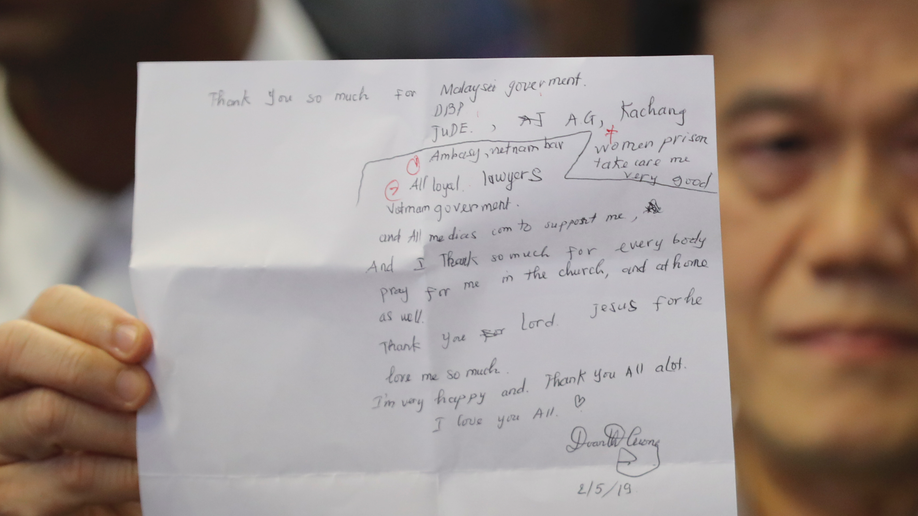 Thank you so much for Malaysei goverment.
DBP
JUDE., AG, Kachang
women prison
take care me
very good
① Ambasy, vietnam bar
② All loyal lawyers
Vietnam goverment.
and All medias com to support me,
And I Thank so much for every body
pray for me in the church, and at home
as well.
Thank you lord Jesus for he
love me so much.
I'm very happy and. Thank you All alot.
I love you All. ♡
2/5/19